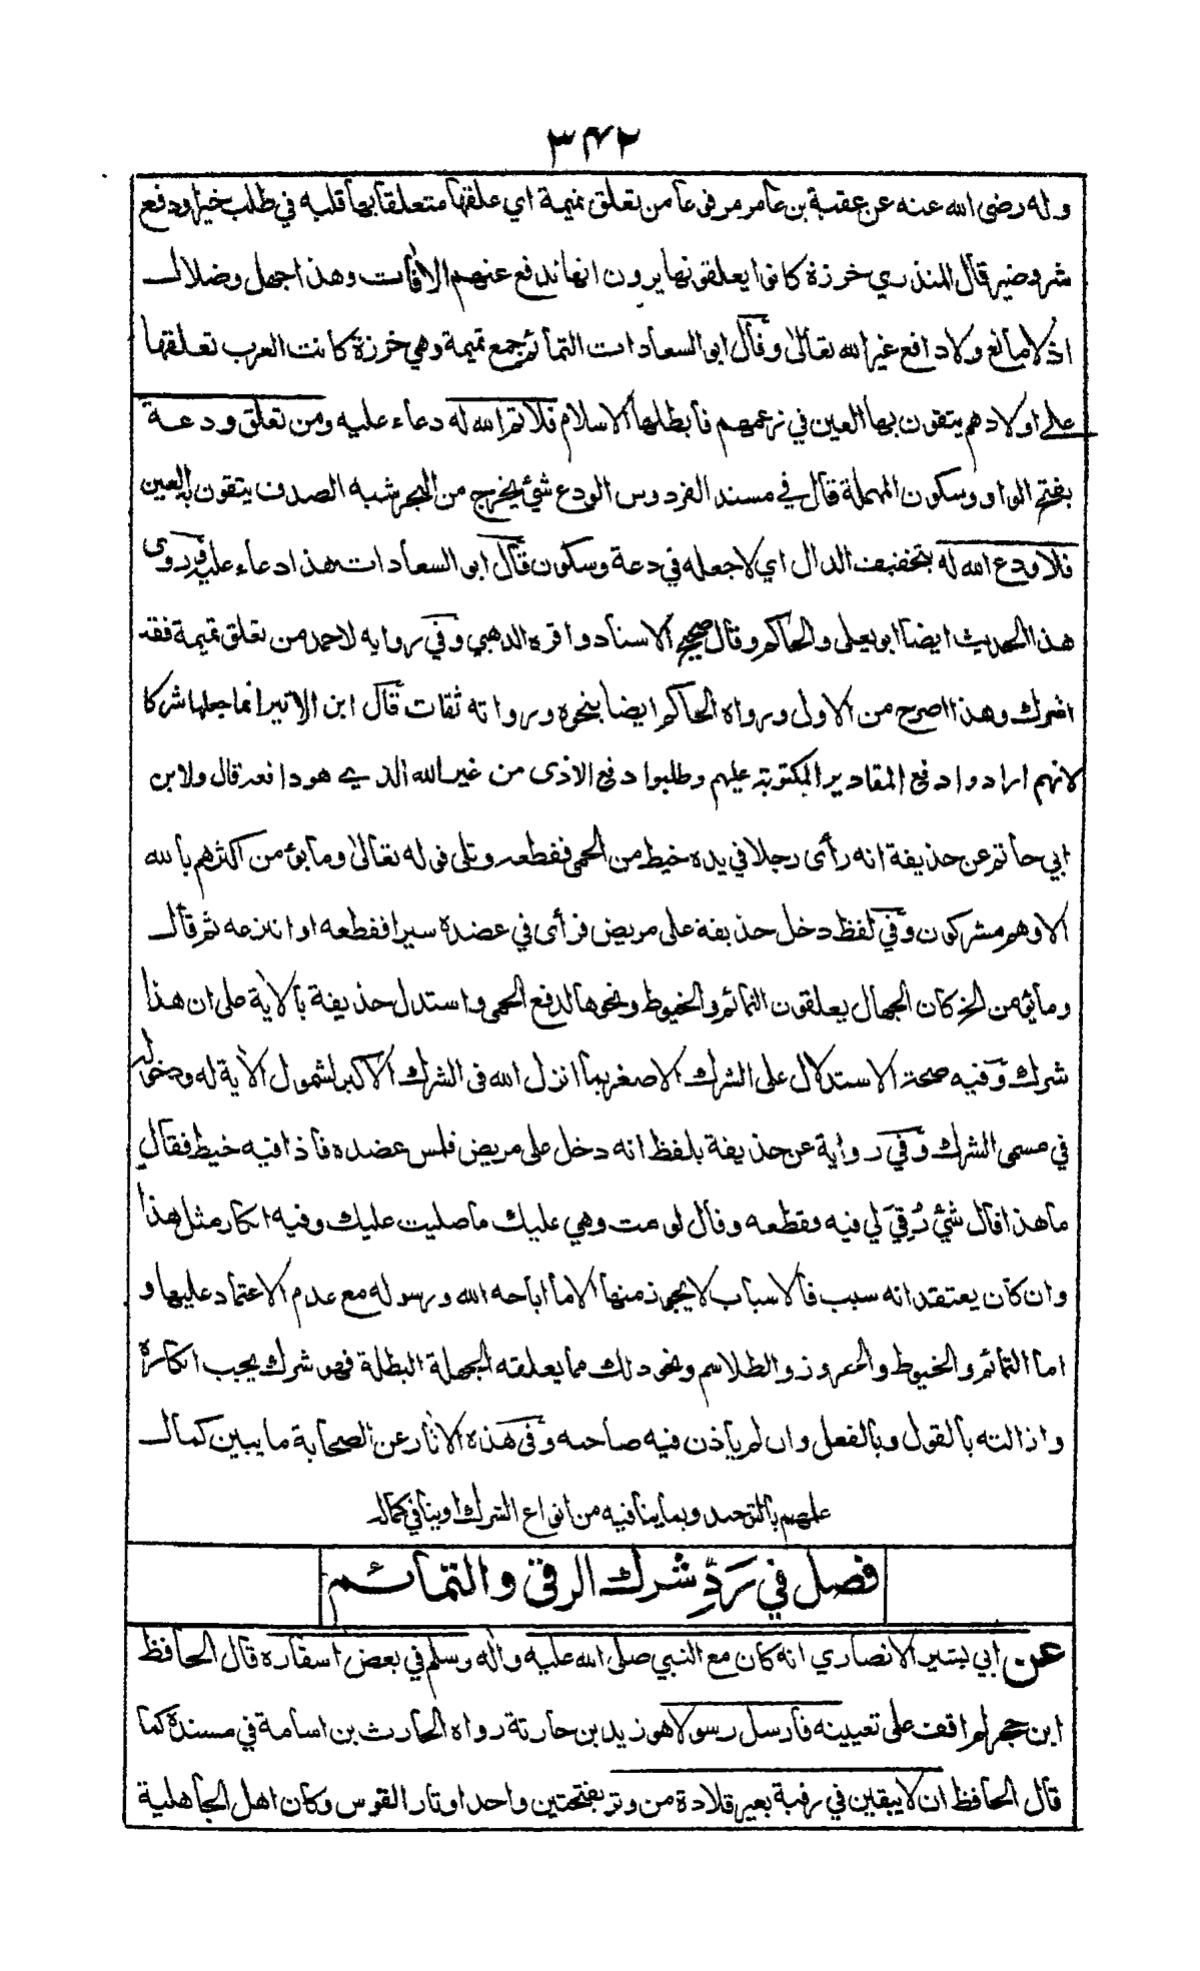 ٣٤٢
وله رضى الله عنه عن عقبة بن عامر مرفوعا من تعلق تميمة اي علقها متعلقا بها قلبه في طلب خير او دفع
شر وضير قال المنذري خرزة كانوا يعلقونها يرون انها تدفع عنهم الافات وهذا جهل وضلال
اذ لا مانع ولا دافع غير الله تعالى وقال ابو السعادات التمائم جمع تميمة وهي خرزة كانت العرب تعلقها
على اولادهم يتقون بها العين في زعمهم فابطلها الاسلام فلا تم الله له دعاء عليه ومن تعلق ودعة
بفتح الواو وسكون المهملة قال في مسند الفردوس الودع شئ يخرج من البحر شبه الصدف يتقون به العين
فلا ودع الله له بتخفيف الدال اي لا جعله في دعة وسكون قال ابو السعادات هذا دعاء عليه وروى
هذا الحديث ايضا ابو يعلى والحاكم وقال صحيح الاسناد واقره الذهبي وفي رواية لاحمد من تعلق تميمة فقد
اشرك وهذا اصرح من الاول ورواه الحاكم ايضا بنحوه ورواته ثقات قال ابن الاثير انما جعلها شركا
لانهم ارادوا دفع المقادير المكتوبة عليهم وطلبوا دفع الاذى من غير الله الذي هو دافعه قال ولابن
ابي حاتم عن حذيفة انه رأى رجلا في يده خيط من الحمى فقطعه وتلى قوله تعالى وما يؤمن اكثرهم بالله
الا وهم مشركون وفي لفظ دخل حذيفة على مريض فرأى في عضده سيرا فقطعه او انتزعه ثم قال
وما يؤمن الخ كان الجهال يعلقون التمائم والخيوط ونحوها لدفع الحمى واستدل حذيفة بالاية على ان هذا
شرك وفيه صحة الاستدلال على الشرك الاصغر بما انزل الله فى الشرك الاكبر لشمول الاية له ودخوله
في مسمى الشرك وفي رواية عن حذيفة بلفظ انه دخل على مريض فلمس عضده فاذا فيه خيط فقال
ما هذا قال شئ رُقِيَ لي فيه فقطعه وقال لو مت وهي عليك ما صليت عليك وفيه انكار مثل هذا
وان كان يعتقد انه سبب فالاسباب لا يجوز منها الا ما اباحه الله ورسوله مع عدم الاعتماد عليها و
اما التمائم والخيوط والحروز والطلاسم ونحو ذلك مما يعلقه الجهلة البطلة فهو شرك يجب انكاره
وازالته بالقول وبالفعل وان لم يأذن فيه صاحبه وفى هذه الاثار عن الصحابة ما يبين كمال
علمهم بالتوحيد وبما ينافيه من انواع الشرك او ينافي كماله
فصل في رَدِّ شرك الرقى والتمائم
عن ابي بشير الانصاري انه كان مع النبي صلى الله عليه واله وسلم في بعض اسفاره قال الحافظ
ابن حجر لم اقف على تعيينه فارسل رسولا هو زيد بن حارثة رواه الحارث بن اسامة في مسنده كما
قال الحافظ ان لا يبقين في رقبة بعير قلادة من وتر بفتحتين واحد اوتار القوس وكان اهل الجاهلية